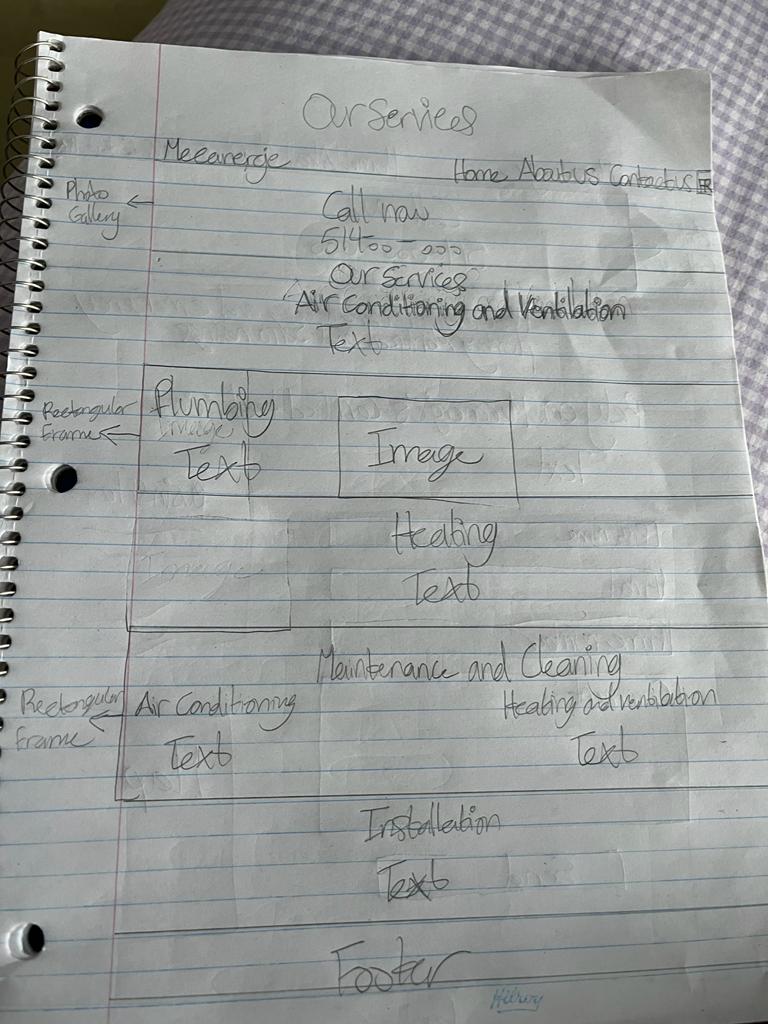 Our Services
Mecanergie
Home About us Contact us FR
Photo
Gallery
Call now
51400-000
Our Services
Air Conditioning and Ventilation
Text
Rectangular
Frame
Plumbing
Image
Text
Image
Heating
Text
Image
Maintenance and Cleaning
Rectangular
Frame
Air Conditioning
Heating and ventilation
Text
Text
Installation
Text
Footer